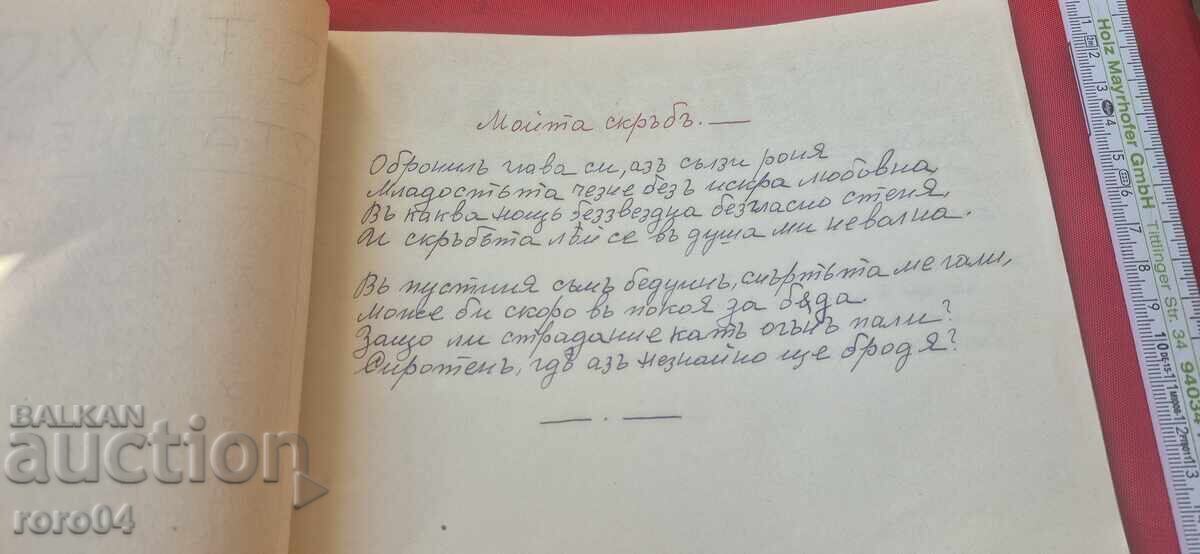 Мойта скръбь. —
Обронилъ глава си, азъ сълзи роня
Младостьта чезне безъ искра любовна,
Въ каква нощь беззвездна безгласно стеня,
И скръбьта лѣй се въ душа ми неволна.
Въ пустиня съмъ бедуинъ, смъртьта ме гали,
Може би скоро въ покоя за бѫда.
Защо ли страдание катъ огънъ пали?
Сиротенъ, гдѣ азъ незнайно ще бродя?
— . —
Holz Mayrhofer GmbH Tittlinger Str. 34 9403
BALKAN
auction
roro04